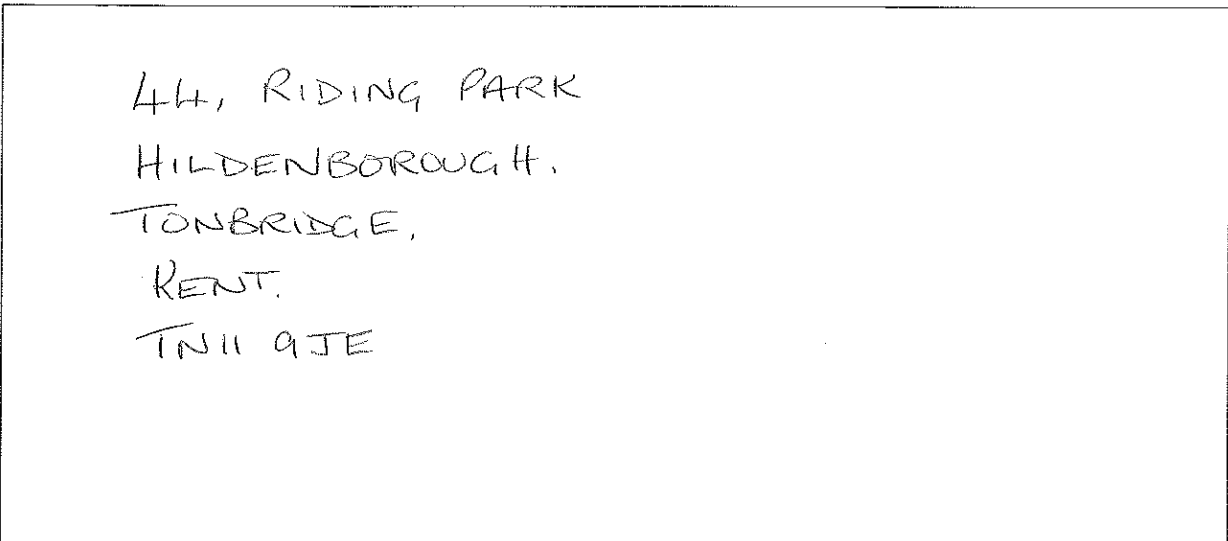 44, RIDING PARK
HILDENBOROUGH.
TONBRIDGE.
KENT.
TN11 9JE